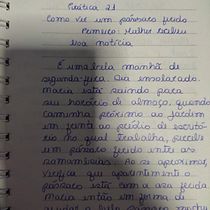 Prática 21
Como ver um pássaro ferido
Primeiro: Mulher
uma notícia
É uma bela manhã de
segunda-feira. Dia ensolarado.
Maria está saindo para
seu horário de almoço, quando
caminha próximo ao jardim
em frente ao prédio de escritó
rio no qual trabalha, percebe
um pássaro ferido entre as
ramagens. Ao se aproximar,
verifica que aparentemente o
pássaro está com a asa ferida
Maria então em forma de
ajudar o belo pássaro